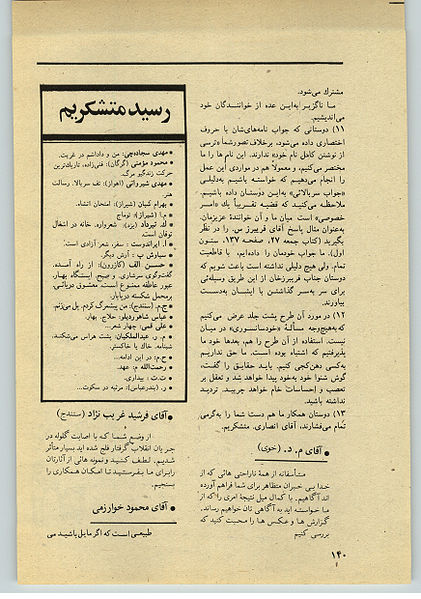 مشترك می‌شود.
ما ناگزیر به‌این عده از خوانندگان خود
می‌اندیشیم.
۱۱) دوستانی که جواب نامه‌های‌شان با حروف
اختصاری داده می‌شود، برخلاف تصور شما «ترسی
از نوشتن کامل نام خود» ندارند. این نام‌ها را ما
مختصر می‌کنیم، و معمولاً هم در مواردی این عمل
را انجام می‌دهیم که خواسته باشیم به‌دلیلی
«جواب سربالائی» به‌این دوستان داده باشیم.
ملاحظه می‌کنید که قضیه تقریباً یك «امر
خصوصی» است میان ما و آن خوانندهٔ عزیزمان.
به‌عنوان مثال پاسخ آقای فریبرز س. را در نظر
بگیرید (کتاب جمعه ۲۷، صفحه ۱۳۷، ستون
اول). ما جواب خودمان را داده‌ایم، با قاطعیت
تمام. ولی هیچ دلیلی نداشته است باعث شویم که
دوست جناب فریبرزخان از این طریق وسیله‌ئی
برای سر به‌سر گذاشتن با ایشان به‌دست
بیاورند.
۱۲) در مورد آن طرح پشت جلد عرض می‌کنیم
که به‌هیچ‌وجه مسألهٔ «خودسانسوری» در میان
نیست. استفاده از آن طرح را هم، بعدها خود ما
پذیرفتیم که اشتباه بوده است. ما حق نداریم
به‌کسی دهن‌کجی کنیم. باید حقایق را گفت،
گوش شنوا خود به‌خود پیدا خواهد شد و تعقل بر
تعصب و احساسات خام خواهد چربید. تردید
نداشته باشید.
۱۳) دوستان همکار ما هم دست شما را به‌گرمی
تمام می‌فشارند، آقای انصاری. متشکریم.
● آقای م. د. (خوی)
متأسفانه از همهٔ ناراحتی هائی که از
خدا بی خبران متظاهر برای شما فراهم آورده
اند آگاهیم. با کمال میل نتیجهٔ امری را که از
ما خواسته اید به آگاهی تان خواهیم رساند.
گزارش ها و عکس ها را محبت کنید که
بررسی کنیم
رسید متشکریم
● مهدی سجاده‌چی: من و داداشم در غربت.
● محمود مؤمنی (گرگان): فنی‌زاده، تاریك‌ترین
حرکت زندگی مرگ.
● مهدی شیروانی (اهواز): تف سربالا. رسالت
هنر.
● بهرام کیان (شیراز): امتحان انشاء.
● م.ا. (شیراز): توماج
● ك. تیرداد (یزد): شعرواره. خانه در اشغال
توفان است.
● ا. ایراندوست: سفر، شعر؛ آزادی است.
● سیاوش ب: آرش دیگر.
● حسن الف (کازرون): از راه آمده.
گفت‌وگوی سرشاری. و صبح. ایستگاه بهار.
عبور عاطفه ممنوع است. معشوق دریائی.
برمحمل شکسته دریابار.
● ج.م. (سنندج): من پیشمرگ کردم. پل می‌زنم.
● عباس شاهوردیلو: حلاج. بهار.
● علی قمی: چهار شعر...
● م. ر. عبدالملکیان: پشت هراس می‌شکند،
شبنامه. خاك یا خاکستر
● ح.م: در این ادامه...
● رحمت‌الله م: عهد.
● ت.ت: بیداری.
● و. ر. (بندرعباس): مرثیه در سکوت...
● آقای فرشید غریب نژاد (سنندج)
از وضع شما که با اصابت گلوله در
جریان انقلاب گرفتار فلج شده اید بسیار متأثر
شدیم. لطف کنید و نمونه هائی از آثارتان
را برای ما بفرستید تا امکان همکاری را
بسنجیم.
● آقای محمود خوارزمی
طبیعی است که اگر مایل باشید می
۱۴۰